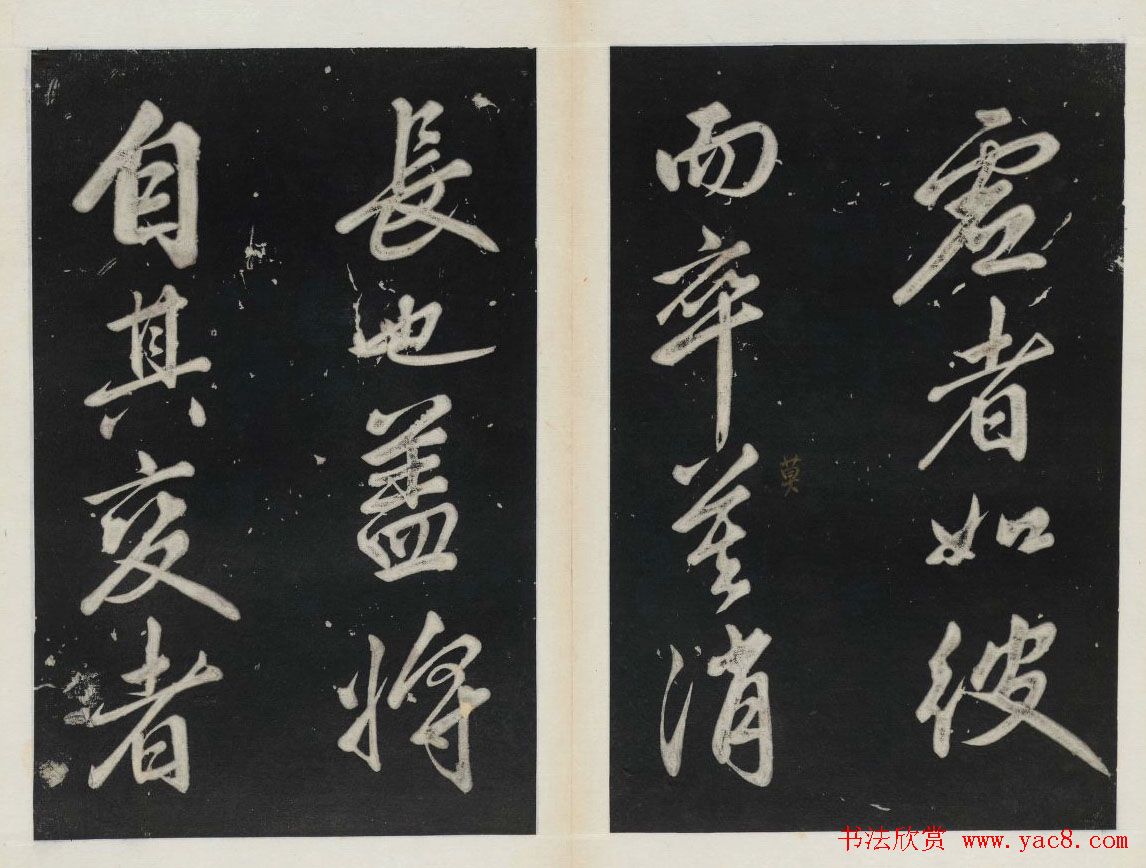 虛者如彼
而卒莫消
莫
長也盖將
自其变者
书法欣赏 www.yac8.com